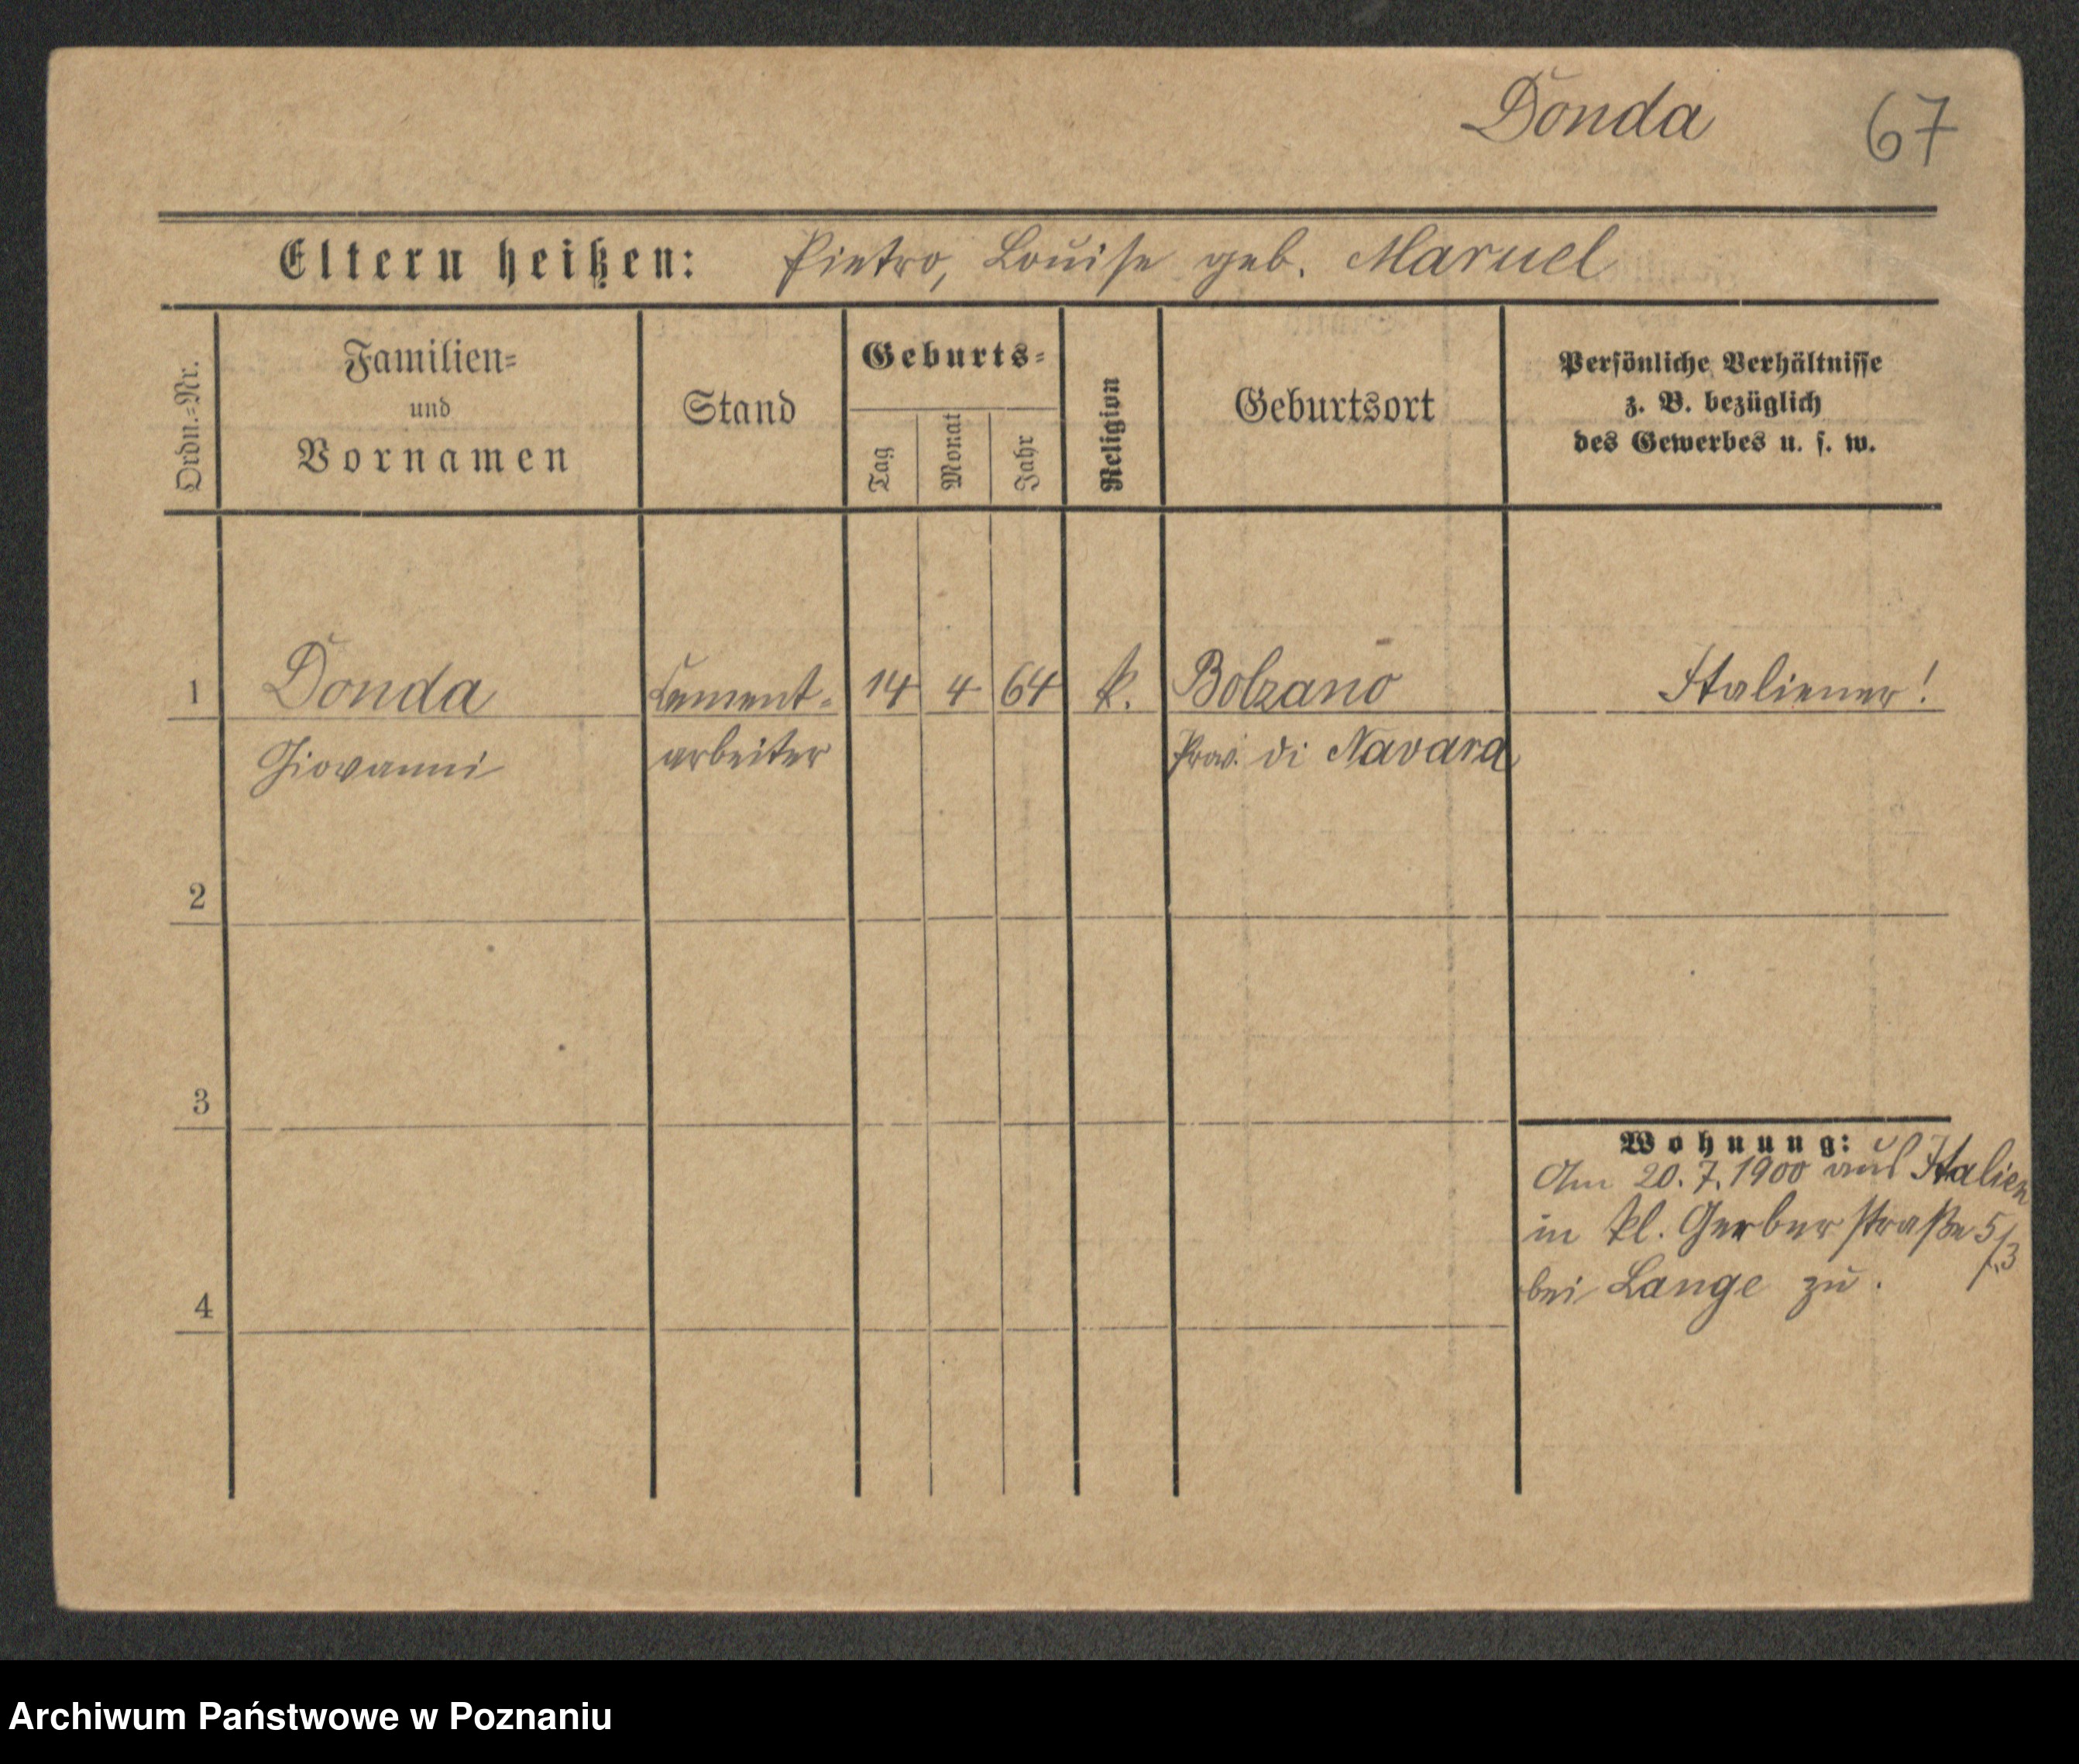 Donda 67
Eltern heißen: Pietro, Louise geb. Maruel
Ordn.=Nr.
Familien=
und
Vornamen
Stand
Geburts=
Tag
Monat
Jahr
Religion
Geburtsort
Persönliche Verhältnisse
z. B. bezüglich
des Gewerbes u. s. w.
1 Donda Cement- 14 4 64 k. Bolzano Italiener!
Giovanni arbeiter Prov. di Navara
2
3
Wohnung:
Am 20.7.1900 aus Italien
in kl. Gerberstraße 5/3
bei Lange zu.
4
Archiwum Państwowe w Poznaniu